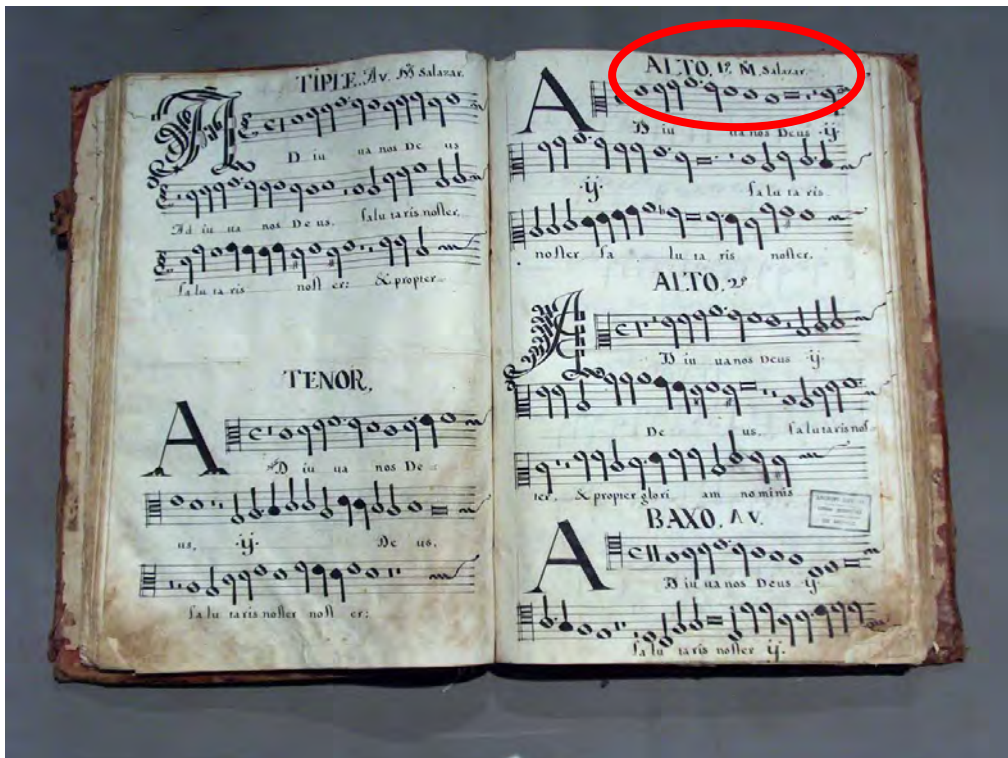 TIPLE. Av. M̃ Salazar.
A D iu ua nos De us
Ad iu ua nos Deus. salu taris noster.
salu ta ris nost er: & propter
TENOR,
A D iu ua nos De
us, ·ij· De us,
salu taris noster nost er:
ALTO. 1º. M̃. Salazar.
A D iu ua nos Deus ·ij·
·ij· salu ta ris
noster sa lu ta ris noster,
ALTO, 2º
A D iu uanos Deus ·ij·
De us, salutaris nos
ter, & propter glori am nominis
BAXO, AV.
A D iu ua nos Deus ij·
salu taris noster ij·